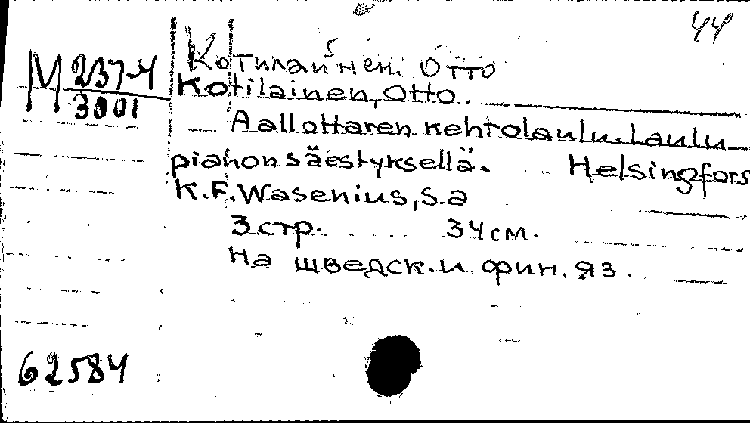 44
М 237-4
3001
Котилайнен Отто
Kotilainen, Otto.
Aallottaren kehtolaulu. Laulu
pianon säestyksellä. Helsingfors
K.F. Wasenius, s.a
3 стр. 34 см.
На шведск. и фин. яз.
62584